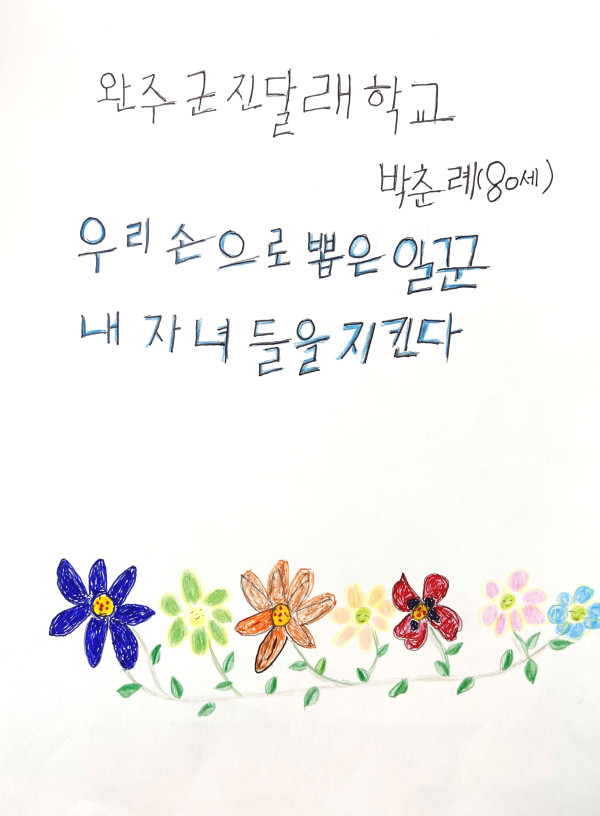 완주군진달래학교
박춘례(80세)
우리 손으로 뽑은 일꾼
내 자녀들을 지킨다